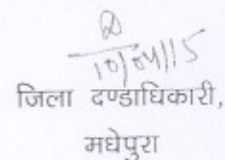 10/04/15
जिला दण्डाधिकारी,
मधेपुरा